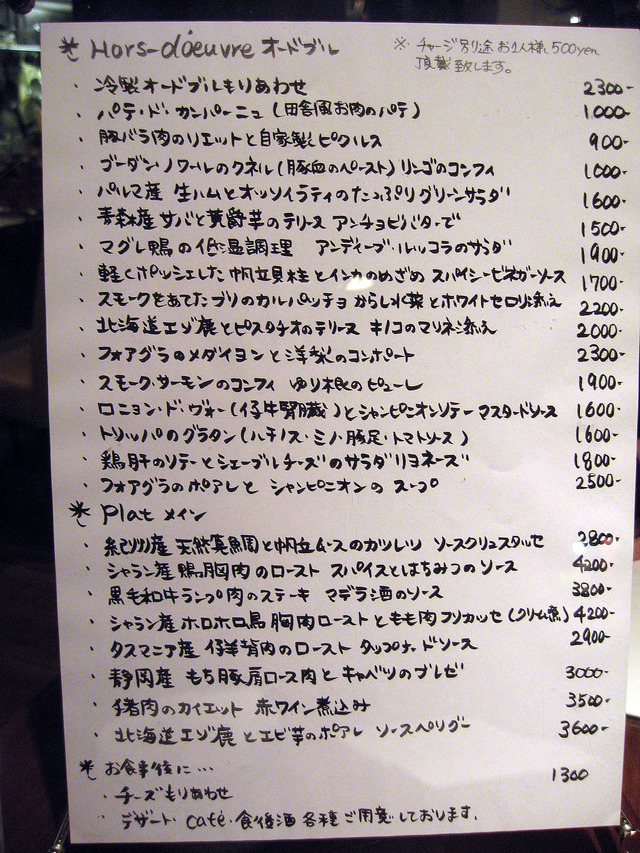 * Hors-d'oeuvre オードブル
※ チャージ別途お1人様、500yen
頂戴致します。
・ 冷製オードブルもりあわせ 2300-
・ パテ・ド・カンパーニュ (田舎風お肉のパテ) 1000-
・ 豚バラ肉のリエットと自家製ピクルス 900-
・ ブーダン・ノワールのクネル (豚血のペースト) リンゴのコンフィ 1000-
・ パルマ産 生ハムとオッソイラティのたっぷりグリーンサラダ 1600-
・ 青森産サバと黄爵芋のテリーヌ アンチョビバターで 1500-
・ マグレ鴨の低温調理 アンディーブ・ルッコラのサラダ 1900-
・ 軽くポッシェした帆立貝柱とインカのめざめ スパイシービネガーソース 1700-
・ スモークをあてたブリのカルパッチョ からし水菜とホワイトセロリ添え 2200-
・ 北海道エゾ鹿とピスタチオのテリーヌ キノコのマリネ添え 2000-
・ フォアグラのメダイヨンと洋梨のコンポート 2300-
・ スモーク・サーモンのコンフィ ゆり根のピューレ 1900-
・ ロニョン・ド・ヴォー (仔牛腎臓) とシャンピニオンソテー マスタードソース 1600-
・ トリッパのグラタン (ハチノス・ミノ・豚足・トマトソース) 1600-
・ 鶏肝のソテーとシェーブルチーズのサラダリヨネーズ 1800-
・ フォアグラのポアレと シャンピニオンの スープ 2500-
* Plat メイン
・ 紀州産 天然真鯛と帆立ムースのカツレツ ソースクリュスタッセ 2800-
・ シャラン産 鴨胸肉のロースト スパイスとはちみつのソース 4200-
・ 黒毛和牛ランプ肉のステーキ マデラ酒のソース 3800-
・ シャラン産ホロホロ鳥 胸肉ローストともも肉フリカッセ (クリーム煮) 4200-
・ タスマニア産 仔羊背肉のロースト タップナードソース 2900-
・ 静岡産 もち豚肩ロース肉と キャベツのブレゼ 3000-
・ 猪肉のカイエット 赤ワイン煮込み 3500-
・ 北海道エゾ鹿とエビ芋のポアレ ソースペリグー 3600-
* お食事後に… 1300
・ チーズもりあわせ
・ デザート・café・食後酒 各種ご用意しております.